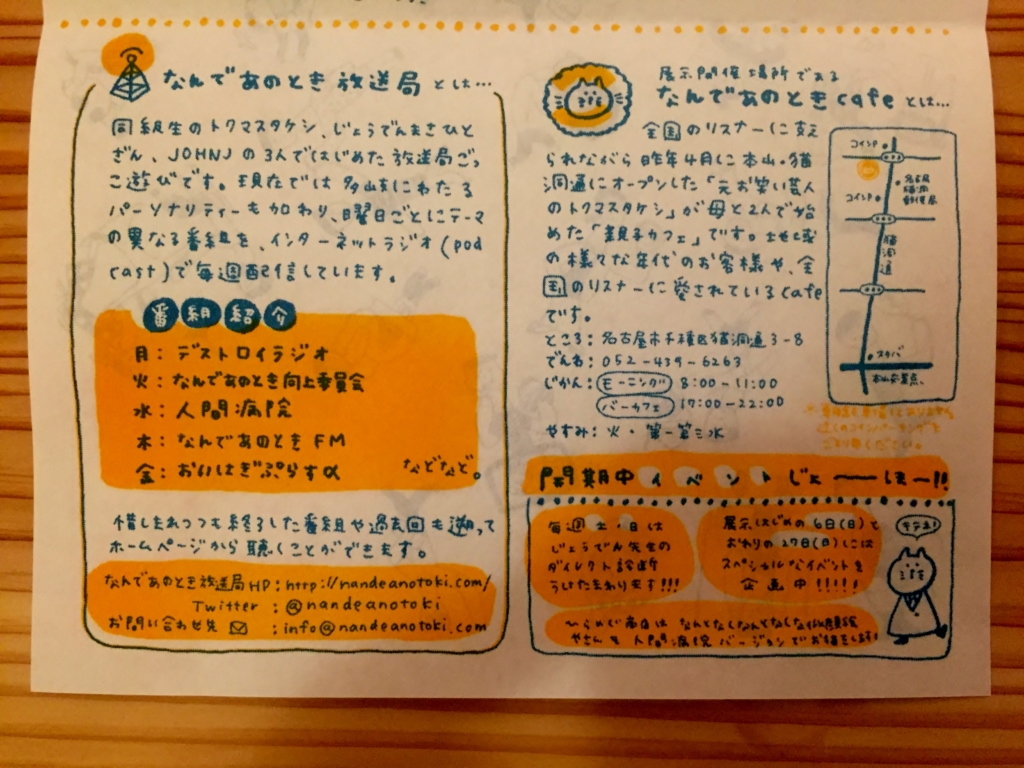 なんであのとき放送局とは…
同級生のトクマスタケシ、じょうでんまさひと
ぎん、JOHNJの3人ではじめた放送局ごっ
こ遊びです。現在では多岐にわたる
パーソナリティーも加わり、曜日ごとにテーマ
の異なる番組を、インターネットラジオ(pod
cast)で毎週配信しています。
番組紹介
月:デストロイラジオ
火:なんであのとき向上委員会
水:人間病院
木:なんであのときFM
金:おいはぎぷらすα
などなど。
惜しまれつつも終了した番組や過去回も遡って
ホームページから聴くことができます。
なんであのとき放送局HP:http://nandeanotoki.com/
Twitter:@nandeanotoki
お問い合わせ先:info@nandeanotoki.com
展示開催場所である
なんであのときcafeとは…
全国のリスナーに支え
られながら昨年4月に本山・猫
洞通にオープンした「元お笑い芸人
のトクマスタケシ」が母と2人で始
めた「親子カフェ」です。地域
の様々な年代のお客様や、全
国のリスナーに愛されているcafe
です。
ところ:名古屋市千種区猫洞通3-8
でんわ:052-439-6263
じかん:モーニング 8:00-11:00
バーカフェ 17:00-22:00
やすみ:火・第一第三水
コインP
名古屋
猫洞
郵便局
コインP
猫洞通
スタバ
本山交差点
近くのコインパーキングを
ご利用ください。
開期中イベントじょーほー!!
毎週土・日は
じょうでん先生の
ダイレクト診断
うけたまわります!!!
展示はじめの6日(日)と
おわりの27日(日)には
スペシャルなイベントを
企画中!!!!!
モテネ!
ひらめじ商店はなんとなくなんとなしな似顔絵
やさんを人間病院バージョンでお描きします!